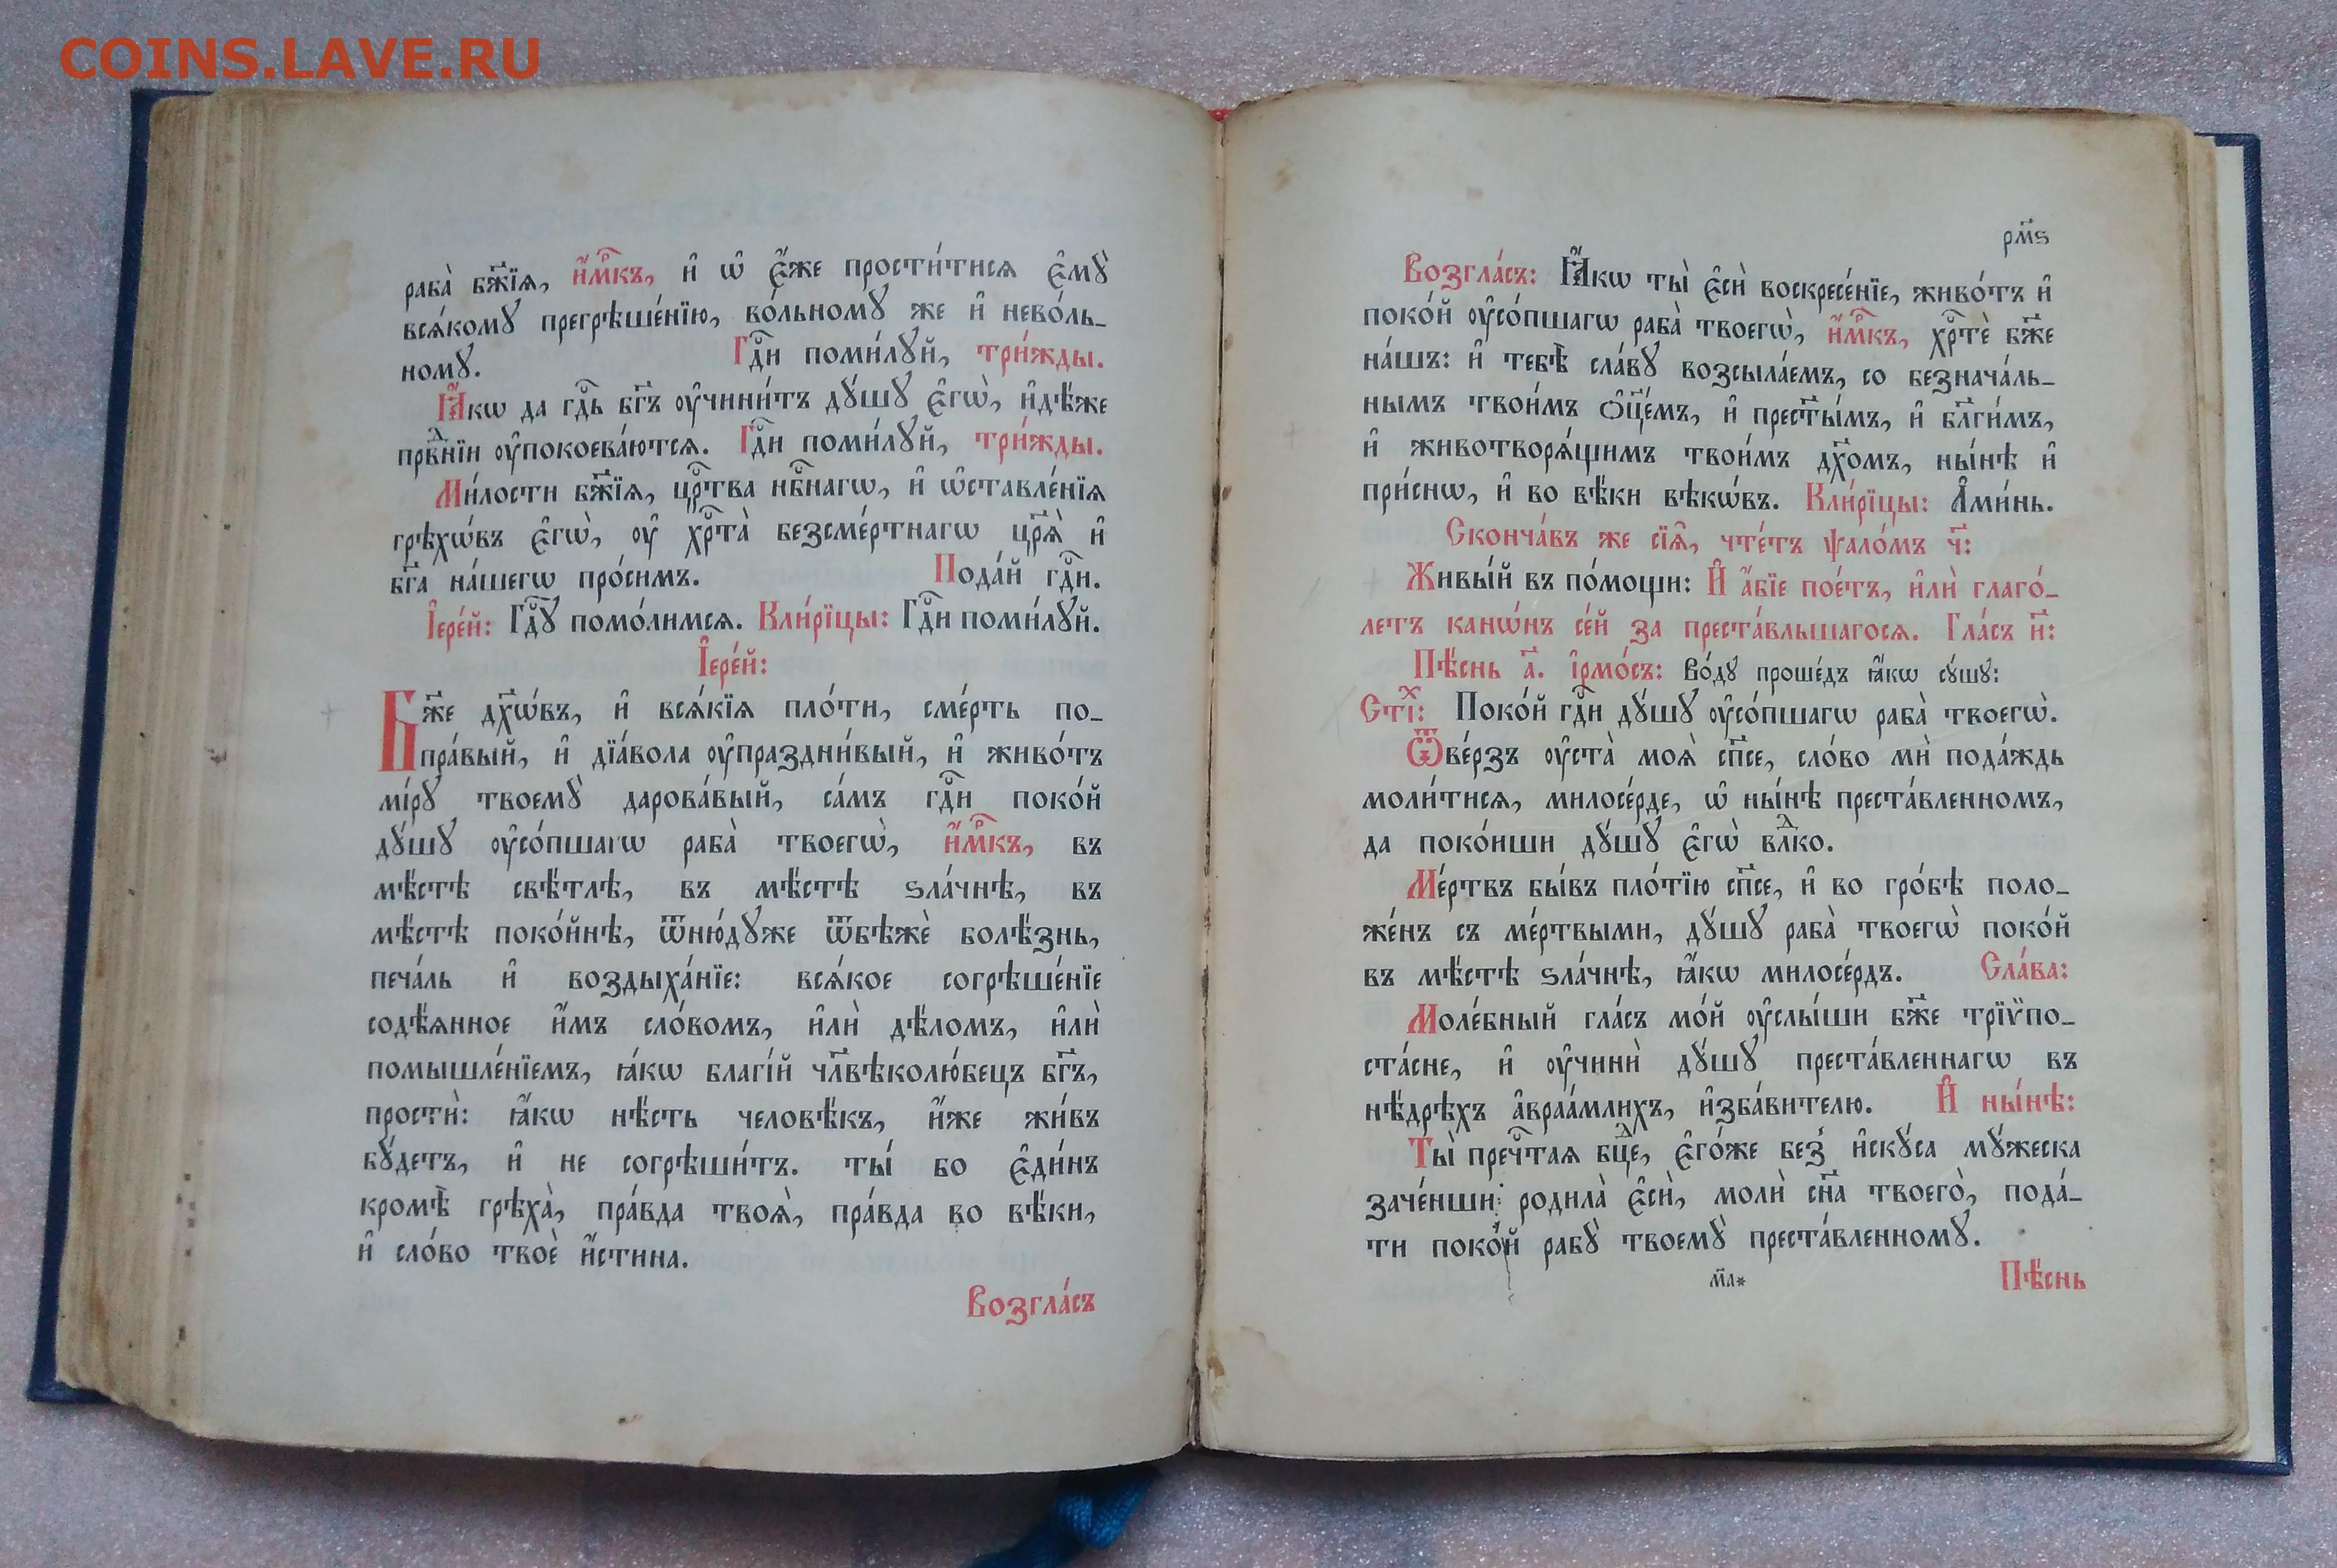 COINS.LAVE.RU
раба̀ бж҃їѧ, и҆́м҃къ, и҆ ѡ҆ є҆́же прости́тисѧ є҆мꙋ̀
всѧ́комꙋ прегрѣше́нїю, во́льномꙋ же и҆ нево́ль_
номꙋ. Гдⷭ҇и поми́лꙋй, три́жды.
Ꙗ҆́кѡ да гдⷭ҇ь бг҃ъ ᲂу҆чини́тъ дꙋ́шꙋ є҆гѡ̀, и҆дѣ́же
првⷣнїи ᲂу҆покоева́ютсѧ. Гдⷭ҇и поми́лꙋй, три́жды.
Ми́лости бж҃їѧ, црⷭ҇тва нбⷭ҇нагѡ, и҆ ѡ҆ставле́нїѧ
грѣхѡ́въ є҆гѡ̀, ᲂу҆ хрⷭ҇та̀ безсме́ртнагѡ цр҃ѧ̀ и҆
бг҃а на́шегѡ про́симъ. Пода́й гдⷭ҇и.
І҆ере́й: Гдⷭ҇ꙋ помо́лимсѧ. Кли́рїцы: Гдⷭ҇и поми́лꙋй.
І҆ере́й:
Бж҃е дх҃ѡ́въ, и҆ всѧ́кїѧ пло́ти, сме́рть по_
пра́вый, и҆ дїа́вола ᲂу҆праздни́вый, и҆ живо́тъ
мі́рꙋ твоемꙋ̀ дарова́вый, са́мъ гдⷭ҇и поко́й
дꙋ́шꙋ ᲂу҆со́пшагѡ раба̀ твоегѡ̀, и҆́м҃къ, въ
мѣ́стѣ свѣ́тлѣ, въ мѣ́стѣ ѕла́чнѣ, въ
мѣ́стѣ поко́йнѣ, ѿню́дꙋже ѿбѣжѐ болѣ́знь,
печа́ль и҆ воздыха́нїе: всѧ́кое согрѣше́нїе
содѣ́ѧнное и҆́мъ сло́вомъ, и҆лѝ дѣ́ломъ, и҆лѝ
помышле́нїемъ, ꙗ҆́кѡ благі́й чл҃вѣколю́бецъ бг҃ъ,
простѝ: ꙗ҆́кѡ нѣ́сть человѣ́къ, и҆́же жи́въ
бꙋ́детъ, и҆ не согрѣши́тъ. ты́ бо є҆ди́нъ
кромѣ̀ грѣха̀, пра́вда твоѧ̀, пра́вда во вѣ́ки,
и҆ сло́во твоѐ и҆́стина.
Возгла́съ
рм҃ѕ
Возгла́съ: Ꙗ҆́кѡ ты̀ є҆сѝ воскресе́нїе, живо́тъ и҆
поко́й ᲂу҆со́пшагѡ раба̀ твоегѡ̀, и҆́м҃къ, хрⷭ҇тѐ бж҃е
на́шъ: и҆ тебѣ̀ сла́вꙋ возсыла́емъ, со безнача́ль_
нымъ твои́мъ ѻ҆ц҃е́мъ, и҆ прест҃ы́мъ, и҆ бл҃ги́мъ,
и҆ животворѧ́щимъ твои́мъ дх҃омъ, ны́нѣ и҆
при́снѡ, и҆ во вѣ́ки вѣкѡ́въ. Кли́рїцы: А҆ми́нь.
Сконча́въ же сїѧ̑, чте́тъ ѱало́мъ ч҃:
Живы́й въ по́мощи: И҆ а҆́бїе пое́тъ, и҆лѝ глаго́_
летъ канѡ́нъ се́й за преста́вльшагосѧ. Гла́съ и҃:
Пѣ́снь а҃. і҆рмо́съ: Во́дꙋ проше́дъ ꙗ҆́кѡ сꙋ́шꙋ:
Стїⷯ: Поко́й гдⷭ҇и дꙋ́шꙋ ᲂу҆со́пшагѡ раба̀ твоегѡ̀.
Ѿве́рзъ ᲂу҆ста̀ моѧ̀ сп҃се, сло́во мѝ пода́ждь
моли́тисѧ, милосе́рде, ѡ҆ ны́нѣ преста́вленномъ,
да поко́иши дꙋ́шꙋ є҆гѡ̀ влⷣко.
Ме́ртвъ бы́въ пло́тїю сп҃се, и҆ во гро́бѣ поло_
же́нъ съ ме́ртвыми, дꙋ́шꙋ раба̀ твоегѡ̀ поко́й
въ мѣ́стѣ ѕла́чнѣ, ꙗ҆́кѡ милосе́рдъ. Сла́ва:
Моле́бный гла́съ мо́й ᲂу҆слы́ши бж҃е трїѵ̈по_
ста́сне, и҆ ᲂу҆чинѝ дꙋ́шꙋ преста́вленнагѡ въ
нѣ́дрѣхъ а҆враа́млихъ, и҆зба́вителю. И҆ ны́нѣ:
Ты̀ пречⷭ҇таѧ бцⷣе, є҆го́же без̾ и҆скꙋ́са мꙋ́жеска
заче́нши родила̀ є҆сѝ, молѝ сн҃а твоего̀, пода́_
ти поко́й рабꙋ̀ твоемꙋ̀ преста́вленномꙋ.
м҃л*
Пѣ́снь